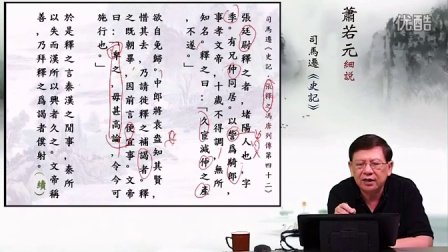 蕭若元 細說
司馬遷《史記》
司馬遷《史記·張釋之馮唐列傳第四十二》
張廷尉釋之者，堵陽人也，字
季。有兄仲同居。以訾爲騎郎，
事孝文帝，十歲不得調，無所
知名。釋之曰：「久宦減仲之產，
不遂。」
欲自免歸。中郎將袁盎知其賢，
惜其去，乃請徙釋之補謁者。釋
之既朝畢，因前言便宜事。文帝
曰：「卑之，毋甚高論，令今可
施行也。」
於是釋之言秦漢之閒事，秦所
以失而漢所以興者久之。文帝稱
善，乃拜釋之爲謁者僕射。（續）